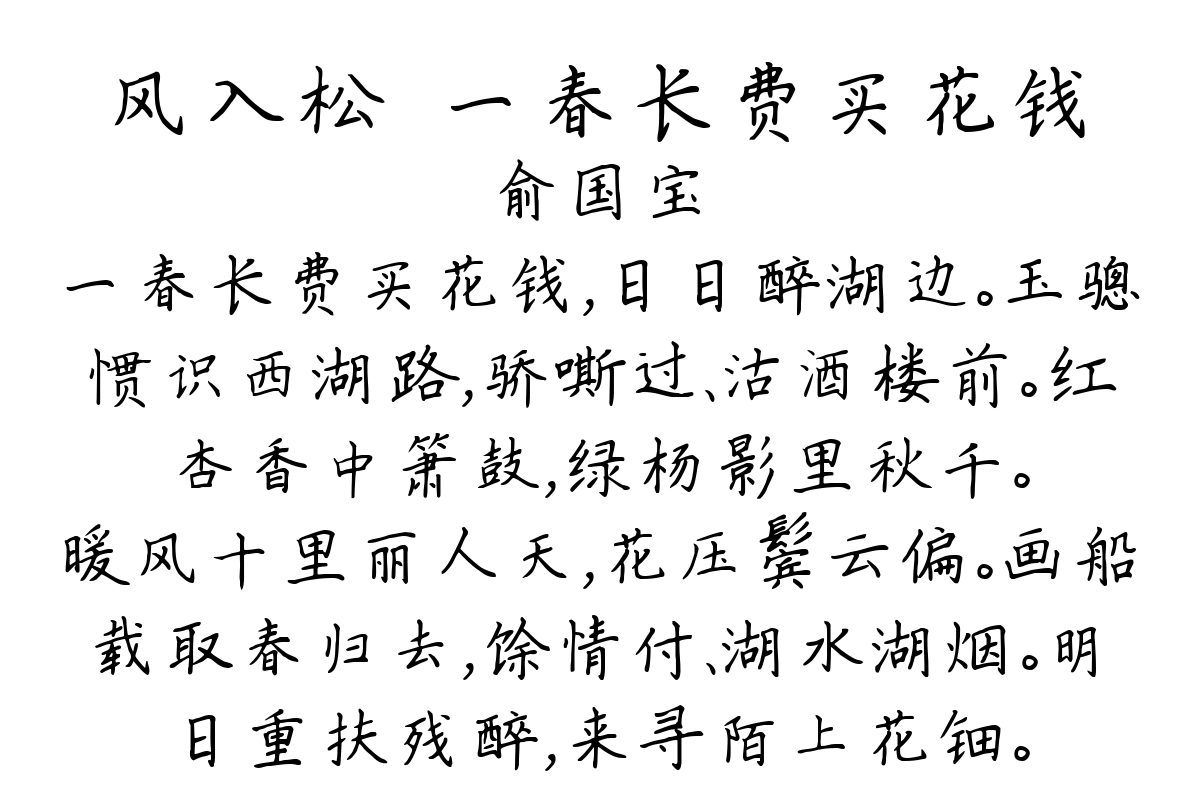 风入松 一春长费买花钱
俞国宝
一春长费买花钱,日日醉湖边。玉骢
惯识西湖路,骄嘶过、沽酒楼前。红
杏香中箫鼓,绿杨影里秋千。
暖风十里丽人天,花压鬓云偏。画船
载取春归去,馀情付、湖水湖烟。明
日重扶残醉,来寻陌上花钿。